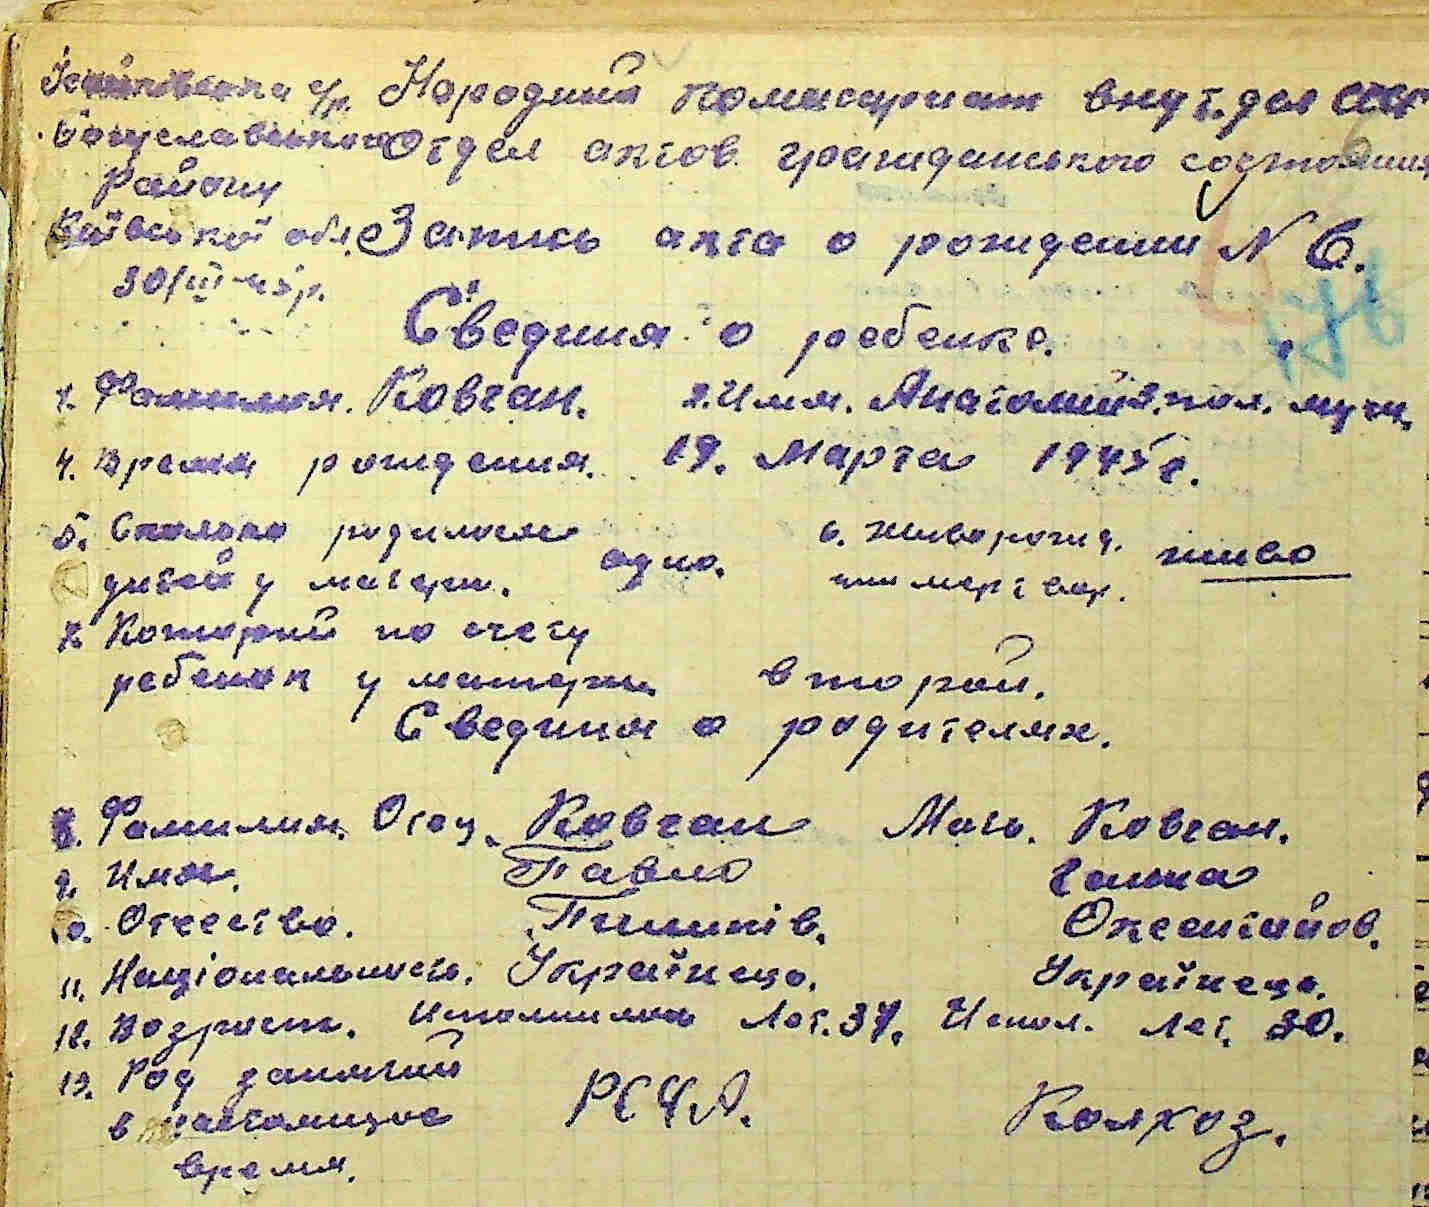 с/р. Народний Комисариат внут. дел СССР
Богуславського Отдел актов гражданського состояния
району
Київської обл. Запись акта о рождении N 6.
30/III-45р.
Сведния о ребенке.
1. Фамилия. Ковган. 2. Имя. Анатолий 3. пол. мужч.
4. Время рождения. 19. Марта 1945 г.
5. Сколько родилося одно. 6. Живорожд. живо
дитей у матери. или мертвор.
7. Которий по счету
ребенок у матери второй.
Сведния о родителях.
8. Фамилия. Отец. Ковган Мать. Ковган.
9. Имя. Павло Ганна
10. Отчество. Пилипів. Оксентийов.
11. Національность. Українець. Українець.
12. Возраст. Исполнилось Лет. 37. Испол. Лет. 30.
13. Род занятий
в настоящое РСЧА. Колхоз.
время.